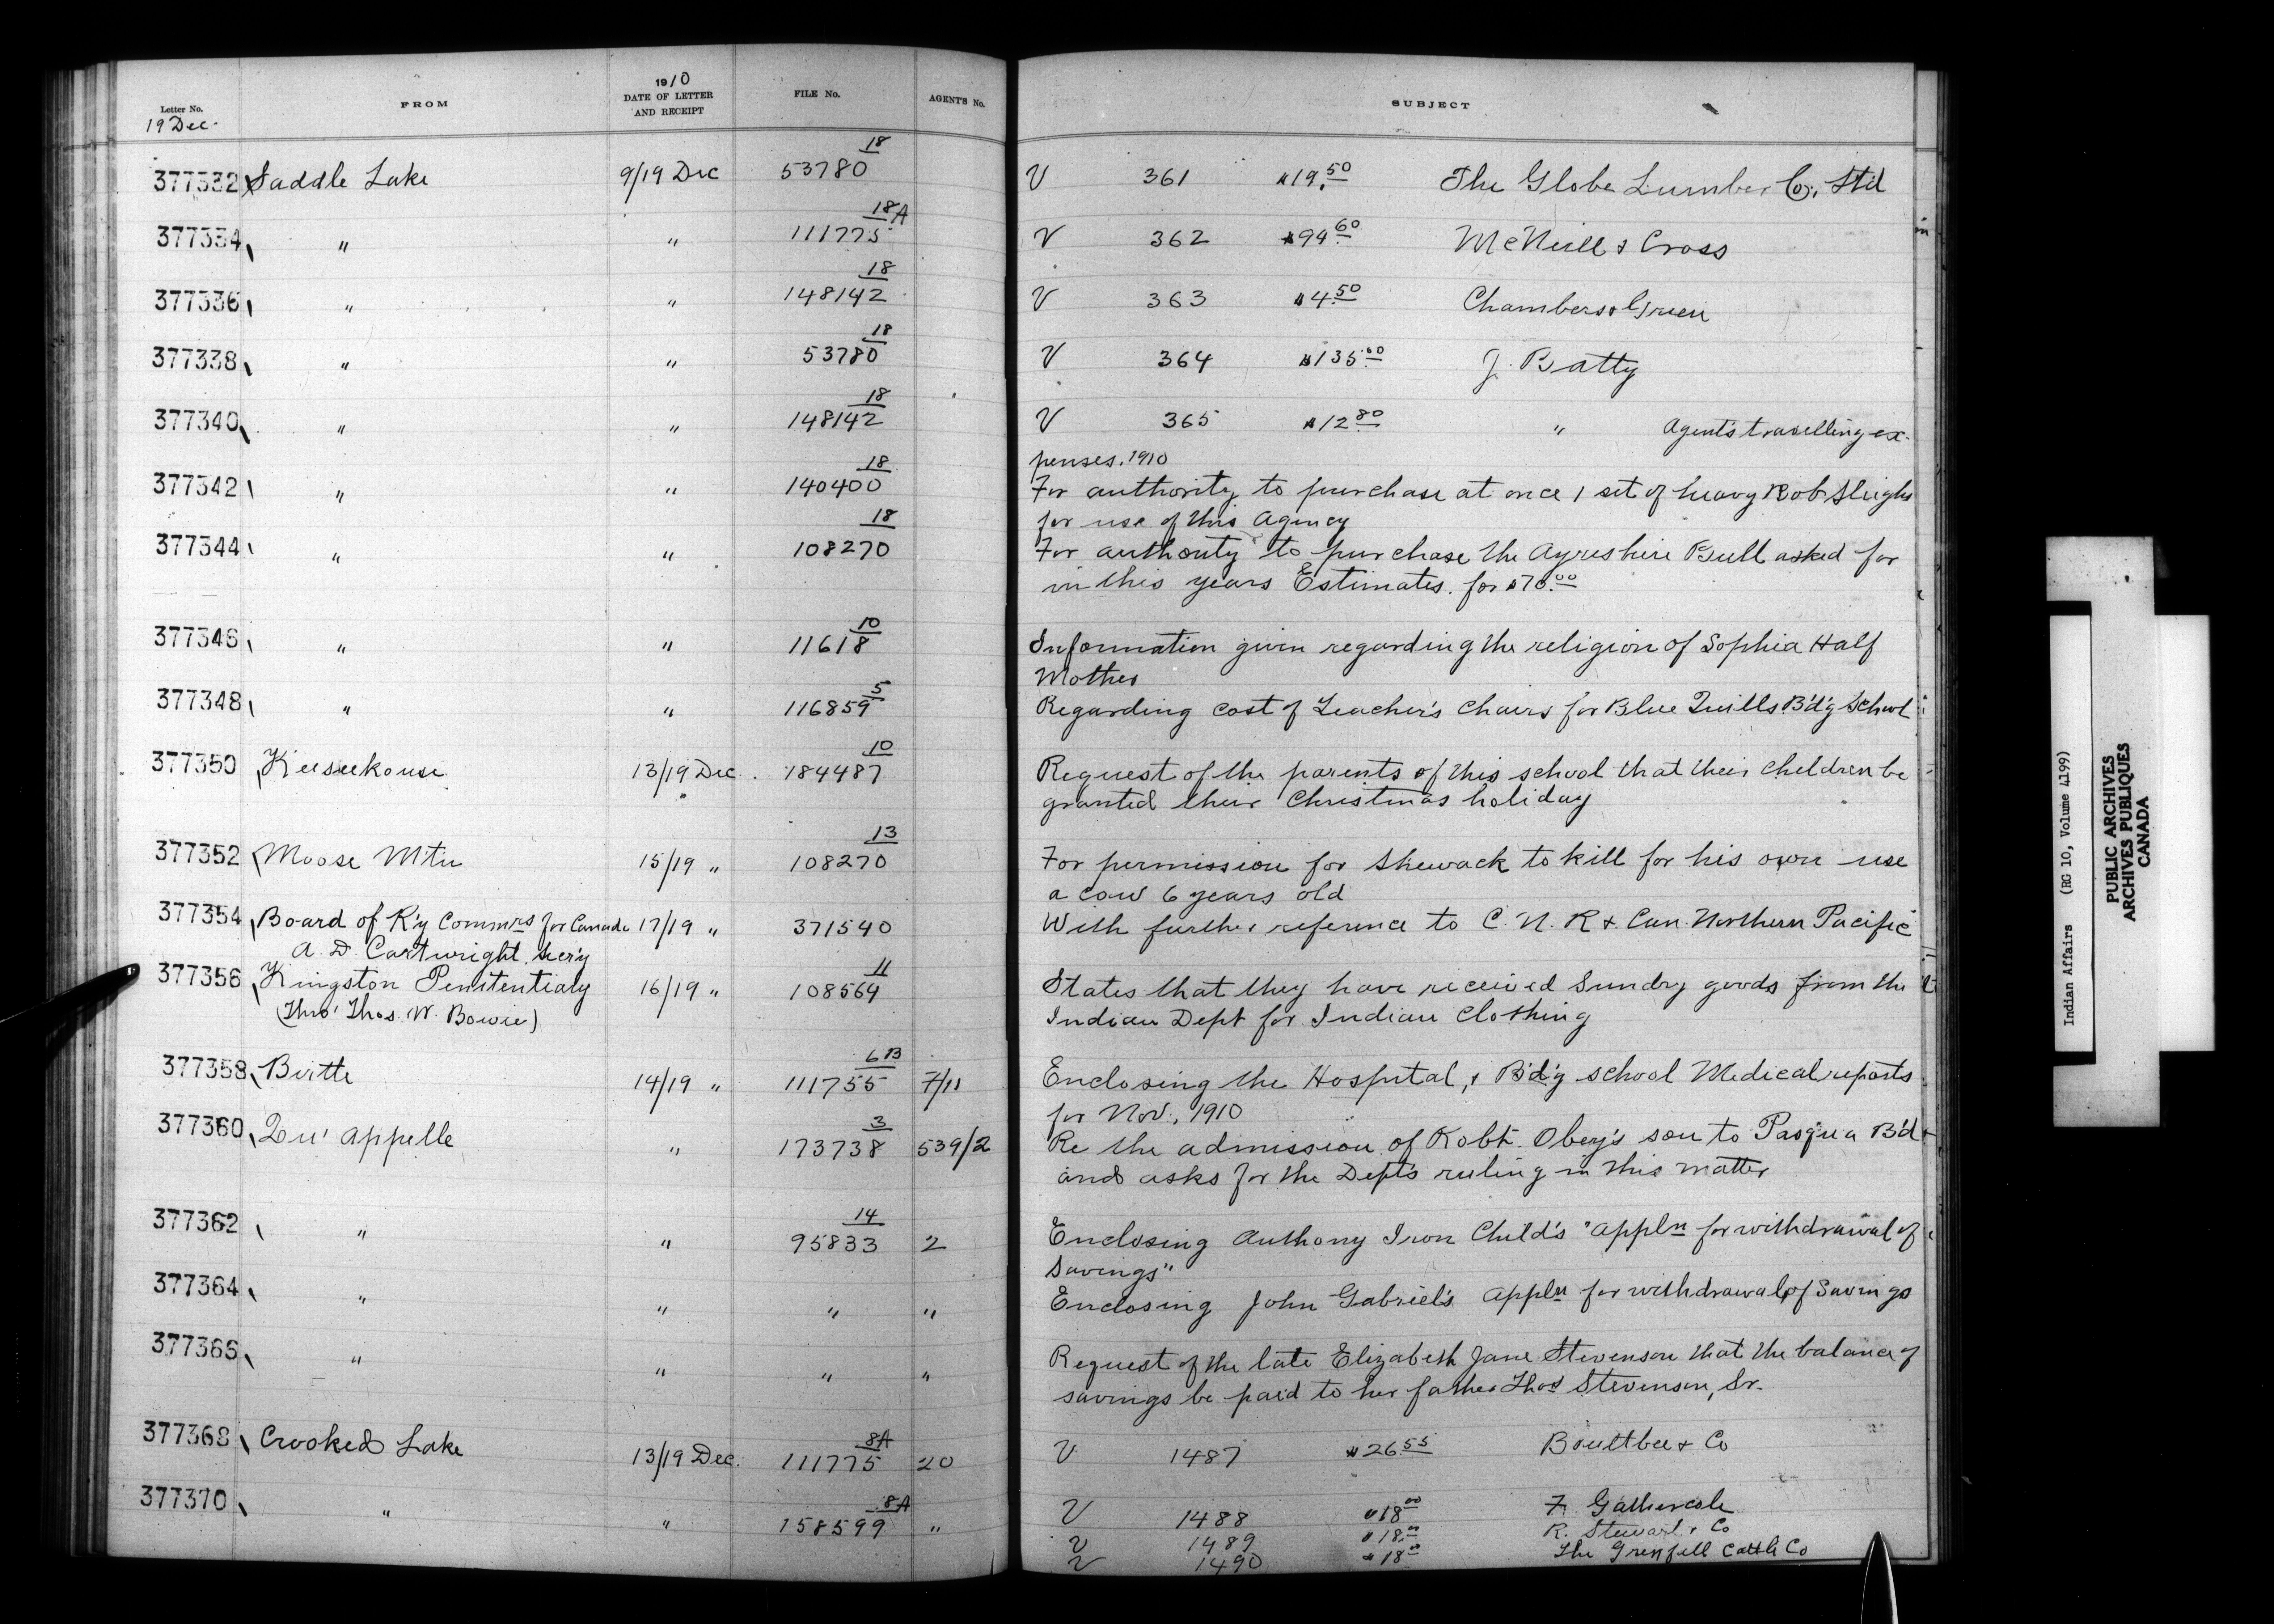 Letter No. FROM 1910 DATE OF LETTER AND RECEIPT FILE No. AGENT'S No. SUBJECT
19 Dec.
377332 Saddle Lake 9/19 Dec 53780 18 V 361 $19.50 The Globe Lumber Co., Ltd
377334 " " 111775 18A V 362 $94.60 McNeill & Cross
377336 " " 148142 18 V 363 $4.50 Chambers & Green
377338 " " 53780 18 V 364 $135.00 J. Batty
377340 " " 148142 18 V 365 $12.80 " Agent's travelling ex-
penses. 1910
377342 " " 140400 18 For authority to purchase at once 1 set of heavy Bob Sleighs
for use of this Agency
377344 " " 108270 18 For authority to purchase the Ayreshire Bull asked for
in this years Estimates. for $70.00
377346 " " 11618 10 Information given regarding the religion of Sophia Half
Mother
377348 " " 116859 5 Regarding cost of Teacher's Chairs for Blue Quills B'd'g School
377350 Keeseekouse 13/19 Dec. 184487 10 Request of the parents of this school that their children be
granted their Christmas holiday
377352 Moose Mtn 15/19 " 108270 13 For permission for Shewack to kill for his own use
a cow 6 years old
377354 Board of R'y Commrs for Canada 17/19 " 371540 With further reference to C. N. R & Can. Northern Pacific
A. D. Cartwright, Sec'y
377356 Kingston Penitentiary 16/19 " 108564 11 States that they have received Sundry goods from the
(Thro' Thos. W. Bowie) Indian Dept for Indian Clothing
377358 Birtle 14/19 " 111755 6B 7/11 Enclosing the Hospital, & B'd'g school Medical reports
for Nov., 1910
377360 Qu' Appelle " 173738 3 539/2 Re the admission of Robt. Obey's son to Pasqua B'd
and asks for the Dept's ruling in this matter
377362 " " 95833 14 2 Enclosing Anthony Iron Child's "Appln for withdrawal of
Savings"
377364 " " " " Enclosing John Gabriel's Appln for withdrawal of Savings
377366 " " " " Request of the late Elizabeth Jane Stevenson that the balance of
savings be paid to her father Thos Stevenson, Sr.
377368 Crooked Lake 13/19 Dec. 111775 8A 20 V 1487 $26.55 Boultbee & Co
377370 " " 158599 8A " V 1488 $18.00 F. Gathercole
V 1489 $18.00 R. Stewart & Co
V 1490 $18.00 The Grenfell Cattle Co
Indian Affairs (RG 10, Volume 4199)
PUBLIC ARCHIVES
ARCHIVES PUBLIQUES
CANADA